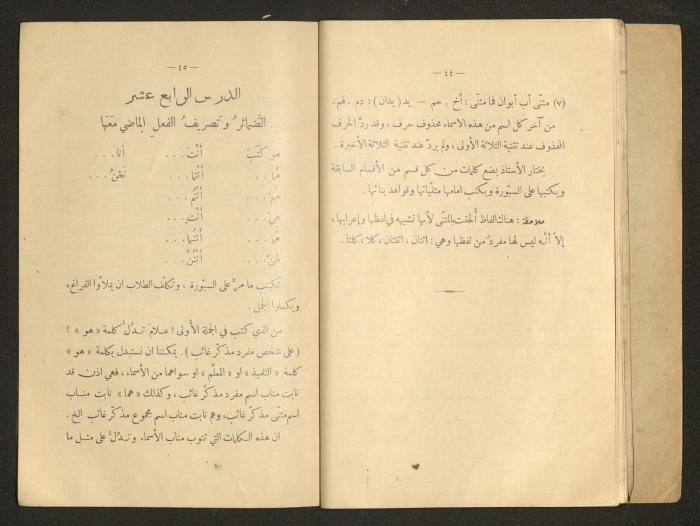 — ٤٤ —
(٧) مثنّى أب أبوان فما مثنّى : أخ . حم — يد (يدان) : دم . فم .
من آخر كل اسم من هذه الاسماء محذوف حرف ، وقد ردّ الحرف
المحذوف عند تثنية الثلاثة الأولى ، ولم يردّ عند تثنية الثلاثة الأخيرة .
يختار الأستاذ بضع كلمات من كل قسم من الأقسام السابقة
ويكتبها على السبّورة ويكتب امامها مثنّياتها وقواعد بنائها .
ملاحظة : هناك الفاظ ألحقت بالمثنى لأنها تشبهه في لفظها وإعرابها ،
إلاّ أنّه ليس لها مفرد من لفظها وهي : اثنان ، اثنتان ، كلا ، كلتا .
— ٤٥ —
الدرس الرابع عشر
الضمائرُ وتصريفُ الفعلِ الماضي مَعَها
هو كَتَبَ أنْتَ . . . أنا . . .
هُما . . . أنْتُما . . . نَحْنُ . . .
هُمْ . . . أنْتُمْ . . .
هِيَ . . . أنْتِ . . .
هُما . . . أنْتُما . . .
هُنَّ . . . أنْتُنَّ . . .
تكتب ما مرّ على السبّورة ، وتكلّف الطلاب ان يملأوا الفراغ ،
ويكملوا الجمل .
من الذي كتب في الجملة الأولى ؟ علامَ تدلّ كلمة « هو » ؟
(على شخص مفرد مذكّر غائب) . يمكننا ان نستبدل بكلمة « هو »
كلمة « التلميذ » او « المعلّم » او سواهما من الأسماء ، فهي اذن قد
نابت مناب اسم مفرد مذكّر غائب ، وكذلك « هما » نابت مناب
اسم مثنّى مذكّر غائب ، وهم نابت مناب اسم مجموع مذكّر غائب الخ .
ان هذه الكلمات التي تنوب مناب الأسماء وتدلّ على مثل ما